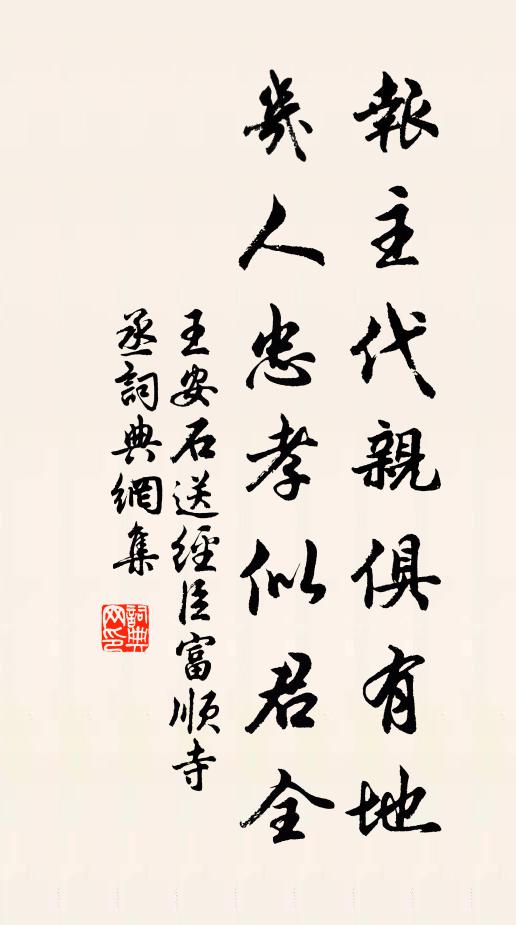 報主代親俱有地
幾人忠孝似君全
王安石送經臣富順寺
丞詞典網集
詞典網印